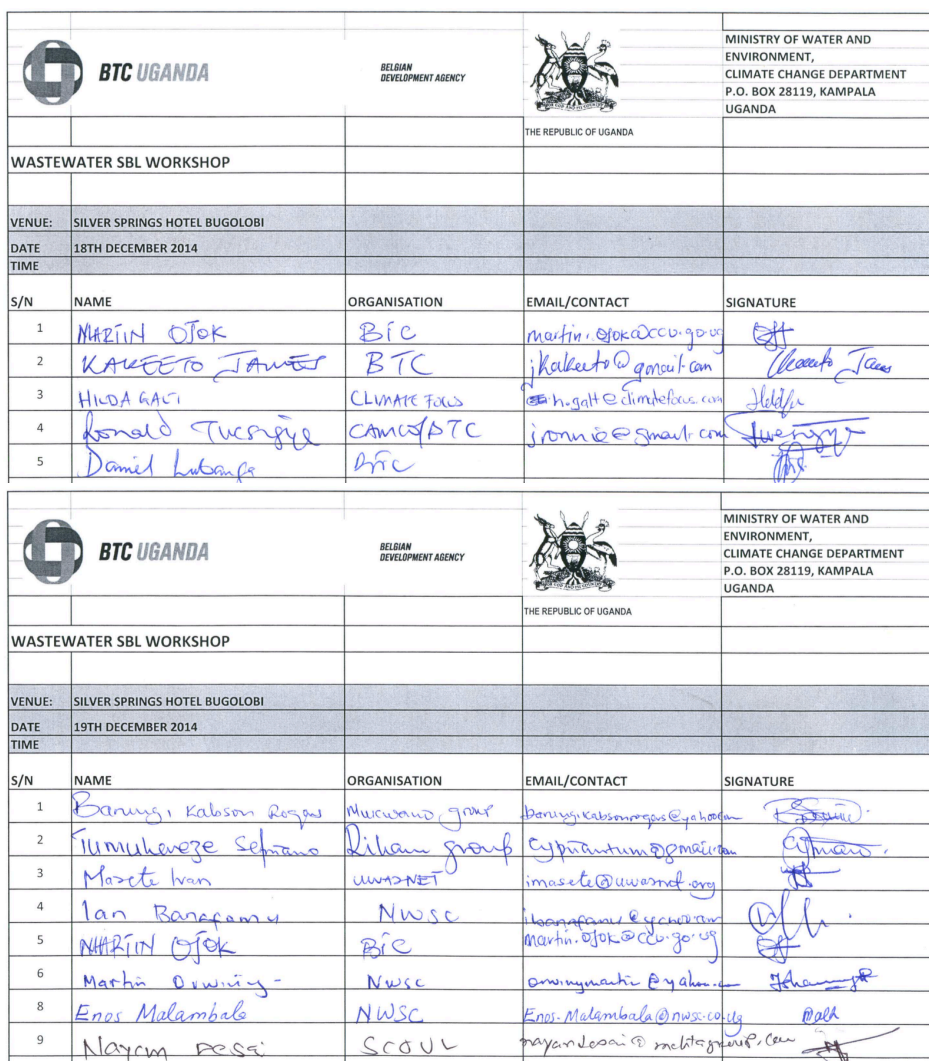 BTC UGANDA
BELGIAN
DEVELOPMENT AGENCY
THE REPUBLIC OF UGANDA
MINISTRY OF WATER AND
ENVIRONMENT,
CLIMATE CHANGE DEPARTMENT
P.O. BOX 28119, KAMPALA
UGANDA
WASTEWATER SBL WORKSHOP
VENUE: SILVER SPRINGS HOTEL BUGOLOBI
DATE 18TH DECEMBER 2014
TIME
S/N NAME ORGANISATION EMAIL/CONTACT SIGNATURE
1 MARTIN OJOK BTC martin.ojok@ccu.go.ug
2 KAKEETO JAMES BTC jkakeeto@gmail.com
3 HILDA GALT CLIMATE FOCUS h.galt@climatefocus.com
4 Ronald CAMCO/BTC jronnie@gmail.com
5 Daniel Lubanga BTC
BTC UGANDA
BELGIAN
DEVELOPMENT AGENCY
THE REPUBLIC OF UGANDA
MINISTRY OF WATER AND
ENVIRONMENT,
CLIMATE CHANGE DEPARTMENT
P.O. BOX 28119, KAMPALA
UGANDA
WASTEWATER SBL WORKSHOP
VENUE: SILVER SPRINGS HOTEL BUGOLOBI
DATE 19TH DECEMBER 2014
TIME
S/N NAME ORGANISATION EMAIL/CONTACT SIGNATURE
1 Kabson Rogers group
2 Tumuhereze Sepriano Riham group
3 Masete Ivan UWASNET imasete@uwasnet.org
4 Ian NWSC
5 MARTIN OJOK BTC martin.ojok@ccu.go.ug
6 Martin NWSC
8 Enos Malambala NWSC Enos.Malambala@nwsc.co.ug
9 Nayan Desai SCOUL nayandesai@mehtagroup.com